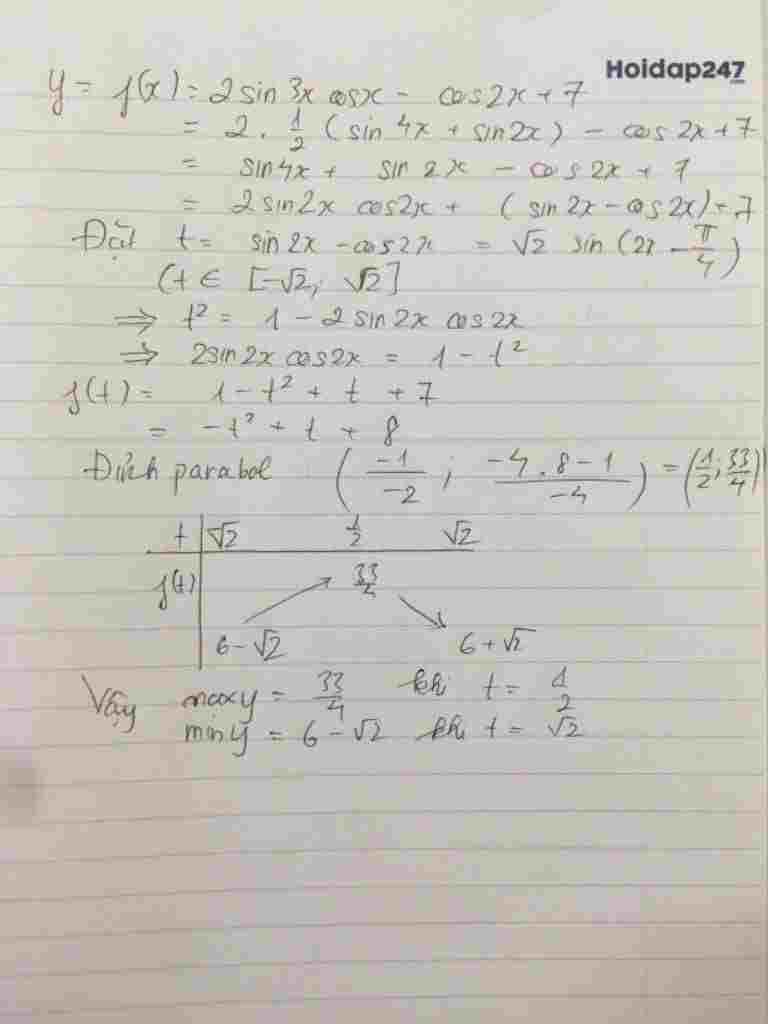 Hoidap247
y = f(x) = 2 sin 3x cosx - cos2x + 7
= 2 . 1/2 (sin 4x + sin2x) - cos 2x + 7
= sin4x + sin 2x - cos2x + 7
= 2sin2x cos2x + (sin 2x - cos 2x) + 7
Đặt t = sin2x - cos2x = √2 sin (2x - π/4)
(t ∈ [-√2; √2]
⇒ t² = 1 - 2 sin 2x cos 2x
⇒ 2sin 2x cos2x = 1 - t²
f(t) = 1 - t² + t + 7
= -t² + t + 8
Đỉnh parabol (-1/-2 ; -4.8-1/-4) = (1/2; 33/4)
t √2 1/2 √2
f(t) 33/4
6-√2 6+√2
Vậy maxy = 33/4 khi t = 1/2
miny = 6 - √2 khi t = √2